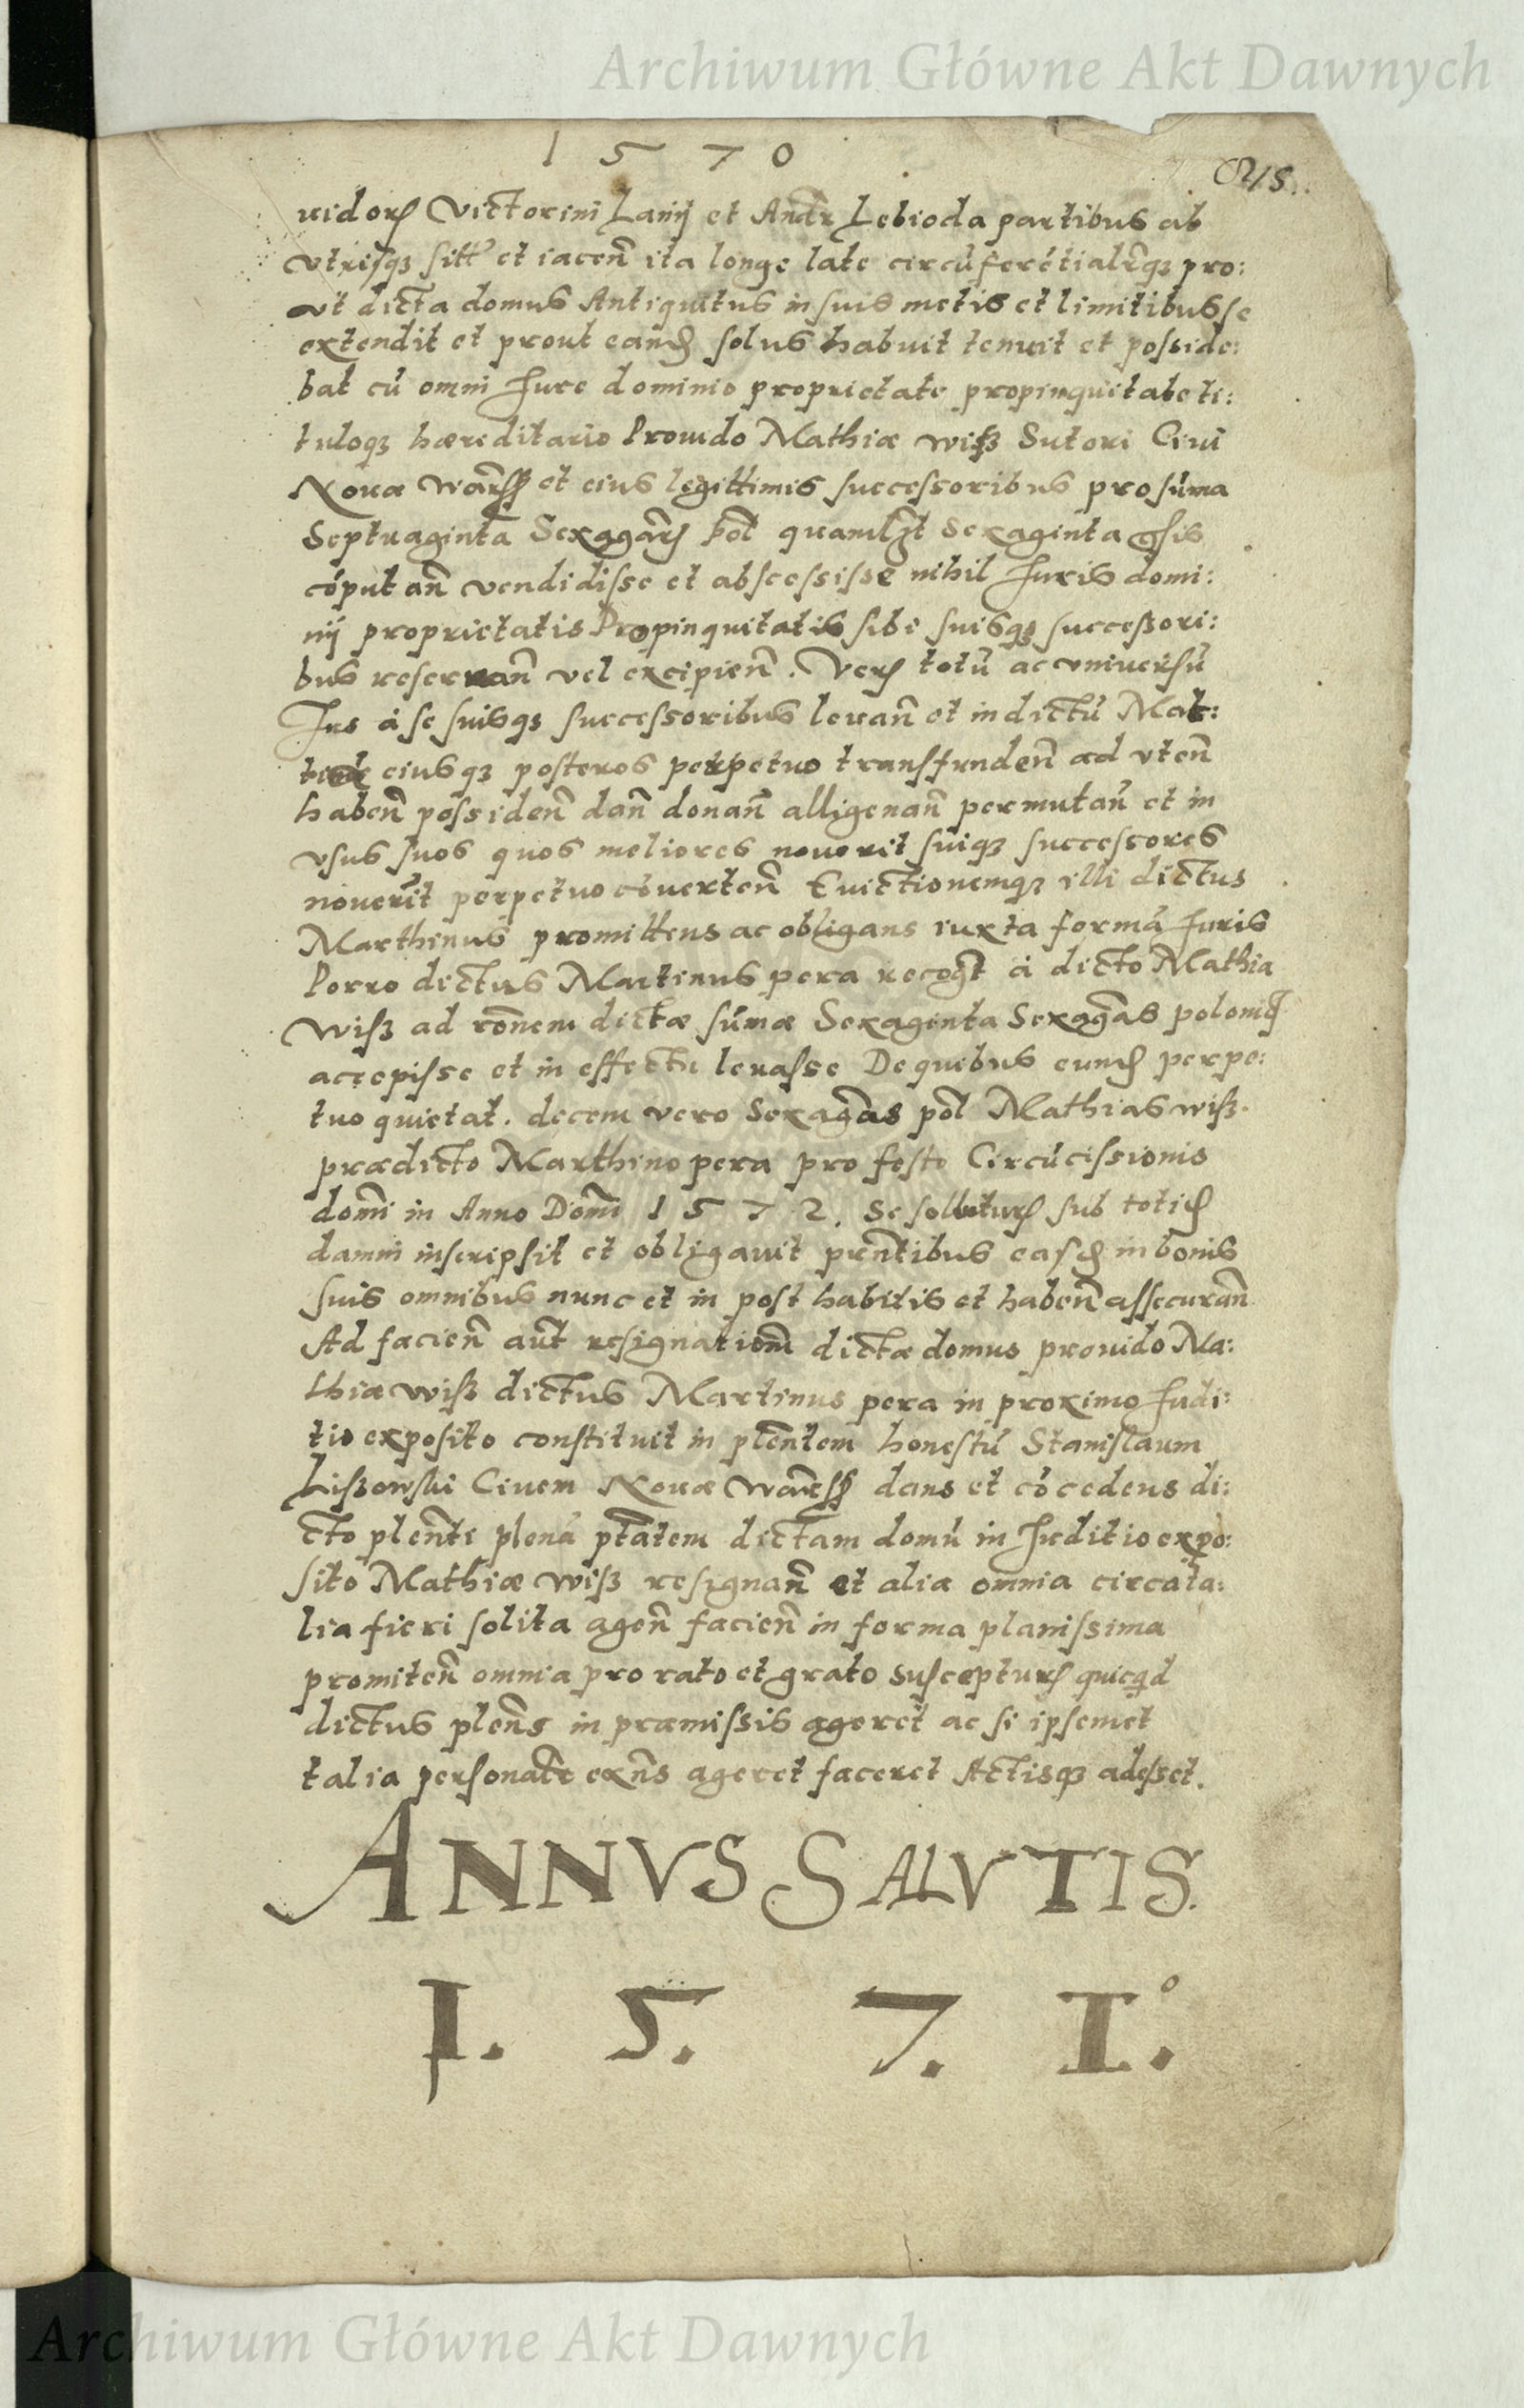 Archiwum Główne Akt Dawnych
1 5 7 0
uidorꝝ Victorini Lanij et Andr Lebioda partibus ab
vtrisqꝫ sitt et iaceñ ita longe late circũferẽtialr̃qꝫ pro:
ut dicta domus Antiquitus in suis metis et limitibus se
extendit et prout eandꝫ solus habuit tenuit et posside:
bat cũ omni Jure dominio proprietate propinquitate ti:
tuloqꝫ hæreditario Prouido Mathiæ wisz Sutori Ciui
Nouæ Warsꝫ et eius legittimis successoribus pro sũma
Septuaginta Sexagarꝝ pol quamlꝫt Sexaginta gsis
cõputañ vendidisse et abscessisse nihil Juris domi:
nij proprietatis Propinquitatis sibi suisqꝫ successori:
bus reseruañ vel excipieñ. Verꝝ totũ ac vniuersũ
Jus à se suisqꝫ successoribus leuañ et in dictũ Mat:
eiusqꝫ posteros perpetuo transfundeñ ad vteñ
habeñ possideñ dañ donañ alligenañ permutañ et in
vsus suos quos meliores nouerit suiqꝫ successores
nouerĩt perpetuo cõuerteñ Euictionemqꝫ illi dictus
Marthinus promittens ac obligans iuxta formã Juris
Porro dictus Martinus pera recogt à dicto Mathia
Wisz ad rõnem dictæ sũmæ Sexaginta Sexagẽas poloniꝫ
accepisse et in effectu leuasse De quibus eundꝫ perpe:
tuo quietat. decem vero Sexagẽas pol Mathias wisz.
prædicto Marthino pera pro festo Circũcissionis
domi in Anno Domi 1 5 7 2. Se soluturꝝ sub totidꝫ
damni inscripsit et obligauit prñtibus easdꝫ in bonis
suis omnibus nunc et in post habitis et habeñ assecurañ
Ad facieñ aũt resignatiom̃ dictæ domus prouido Ma:
thiæ wisz dictus Martinus pera in proximo Judi:
tio exposito constituit in plentem honestũ Stanislaum
Liszowski Ciuem Nouæ Warsꝫ dans et cõcedens di:
cto plenti plenã ptãtem dictam domũ in Juditio expo:
sito Mathiæ wisz resignañ et alia omnia circa ta:
lia fieri solita ageñ facieñ in forma planissima
promiteñ omnia pro rato et grato suscepturꝝ quicqd
dictus pleñs in præmissis ageret ac si ipsemet
talia personalr̃ exñs ageret faceret Actisqꝫ adesset.
ANNVS SALVTIS.
1. 5. 7. 1.°
Archiwum Główne Akt Dawnych